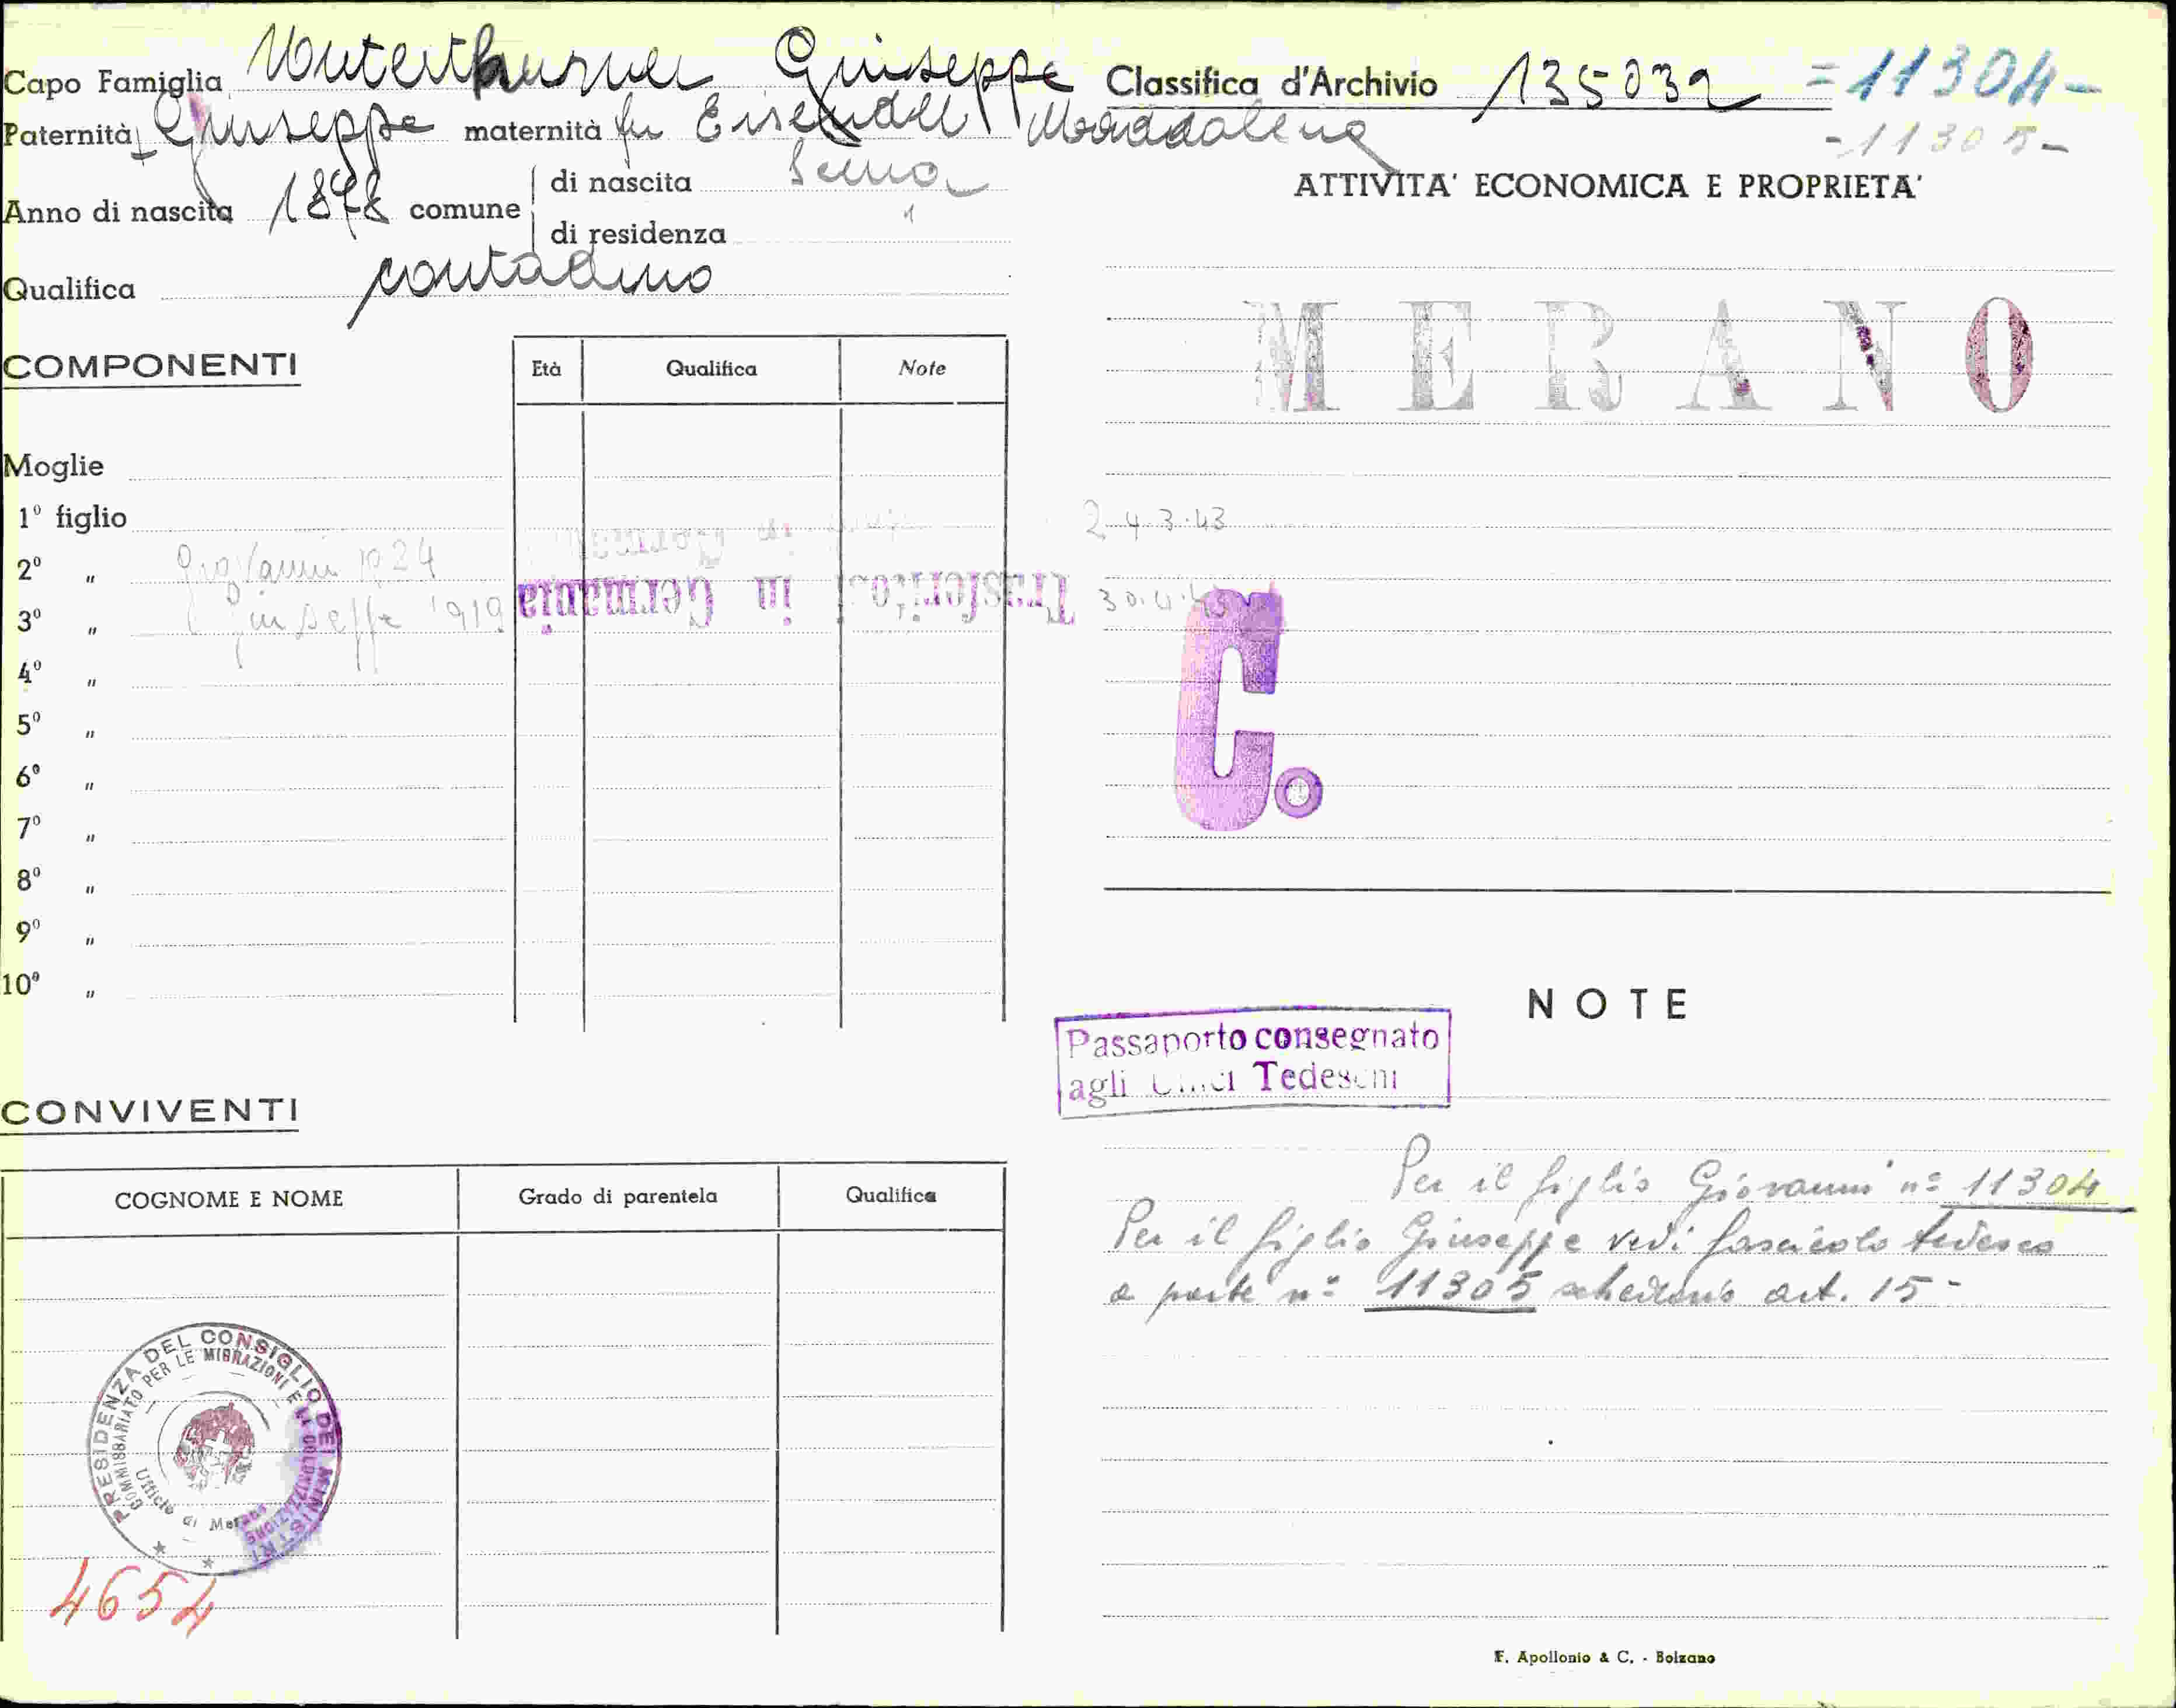 Capo Famiglia Unterthurner Giuseppe
Paternità Giuseppe maternità fu Maddalena
Anno di nascita 1878 comune
di nascita Senna
di residenza
Qualifica contadino
COMPONENTI
Età Qualifica Note
Moglie
1º figlio
2º " Giovanni 1924
3º " Giuseppe 1919
Trasferito in Germania
4º "
5º "
6º "
7º "
8º "
9º "
10º "
CONVIVENTI
COGNOME E NOME Grado di parentela Qualifica
PRESIDENZA DEL CONSIGLIO DEI MINISTRI
COMMISSARIATO PER LE MIGRAZIONI E LA COLONIZZAZIONE
Ufficio di Merano
4654
Classifica d'Archivio 135032 =11304-
-11305-
ATTIVITA' ECONOMICA E PROPRIETA'
MERANO
24.3.43
30.4.43
C.
NOTE
Passaporto consegnato
agli Uffici Tedeschi
Per il figlio Giovanni nº 11304
Per il figlio Giuseppe vedi fascicolo tedesco
a parte nº 11305 schedario art. 15-
F. Apollonio & C. - Bolzano